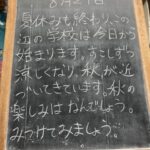 8月29日
夏休みも終わり、この
辺の学校は今日から
始まります。すこしずつ
涼しくなり、秋が近
づいてきています。秋の
楽しみはなんでしょう。
みつけてみましょう。